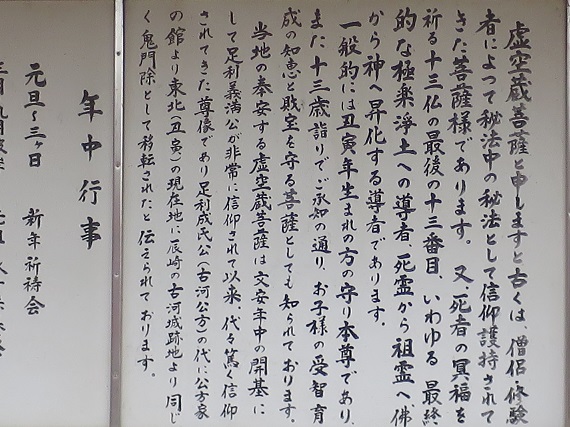 虚空蔵菩薩と申しますと古くは、僧侶・修験
者によつて秘法中の秘法として信仰護持されて
きた菩薩様であります。又、死者の冥福を
祈る十三仏の最後の十三番目、いわゆる最終
的な極楽浄土への導者、死霊から祖霊へ佛
から神へ昇化する導者であります。
一般的には丑寅年生まれの方の守り本尊であり、
また十三歳詣りでご承知の通り、お子様の受智育
成の知恵と財宝を守る菩薩としても知られております。
当地の奉安する虚空蔵菩薩は文安年中の開基に
して足利義満公が非常に信仰されて以来、代々篤く信仰
されてきた尊像であり足利成氏公(古河公方)の代に公方家
の館より東北(丑寅)の現在地に辰崎の古河城跡地より同じ
く鬼門除として移転されたと伝えられております。
年中行事
元旦〜三ヶ日 新年祈祷会